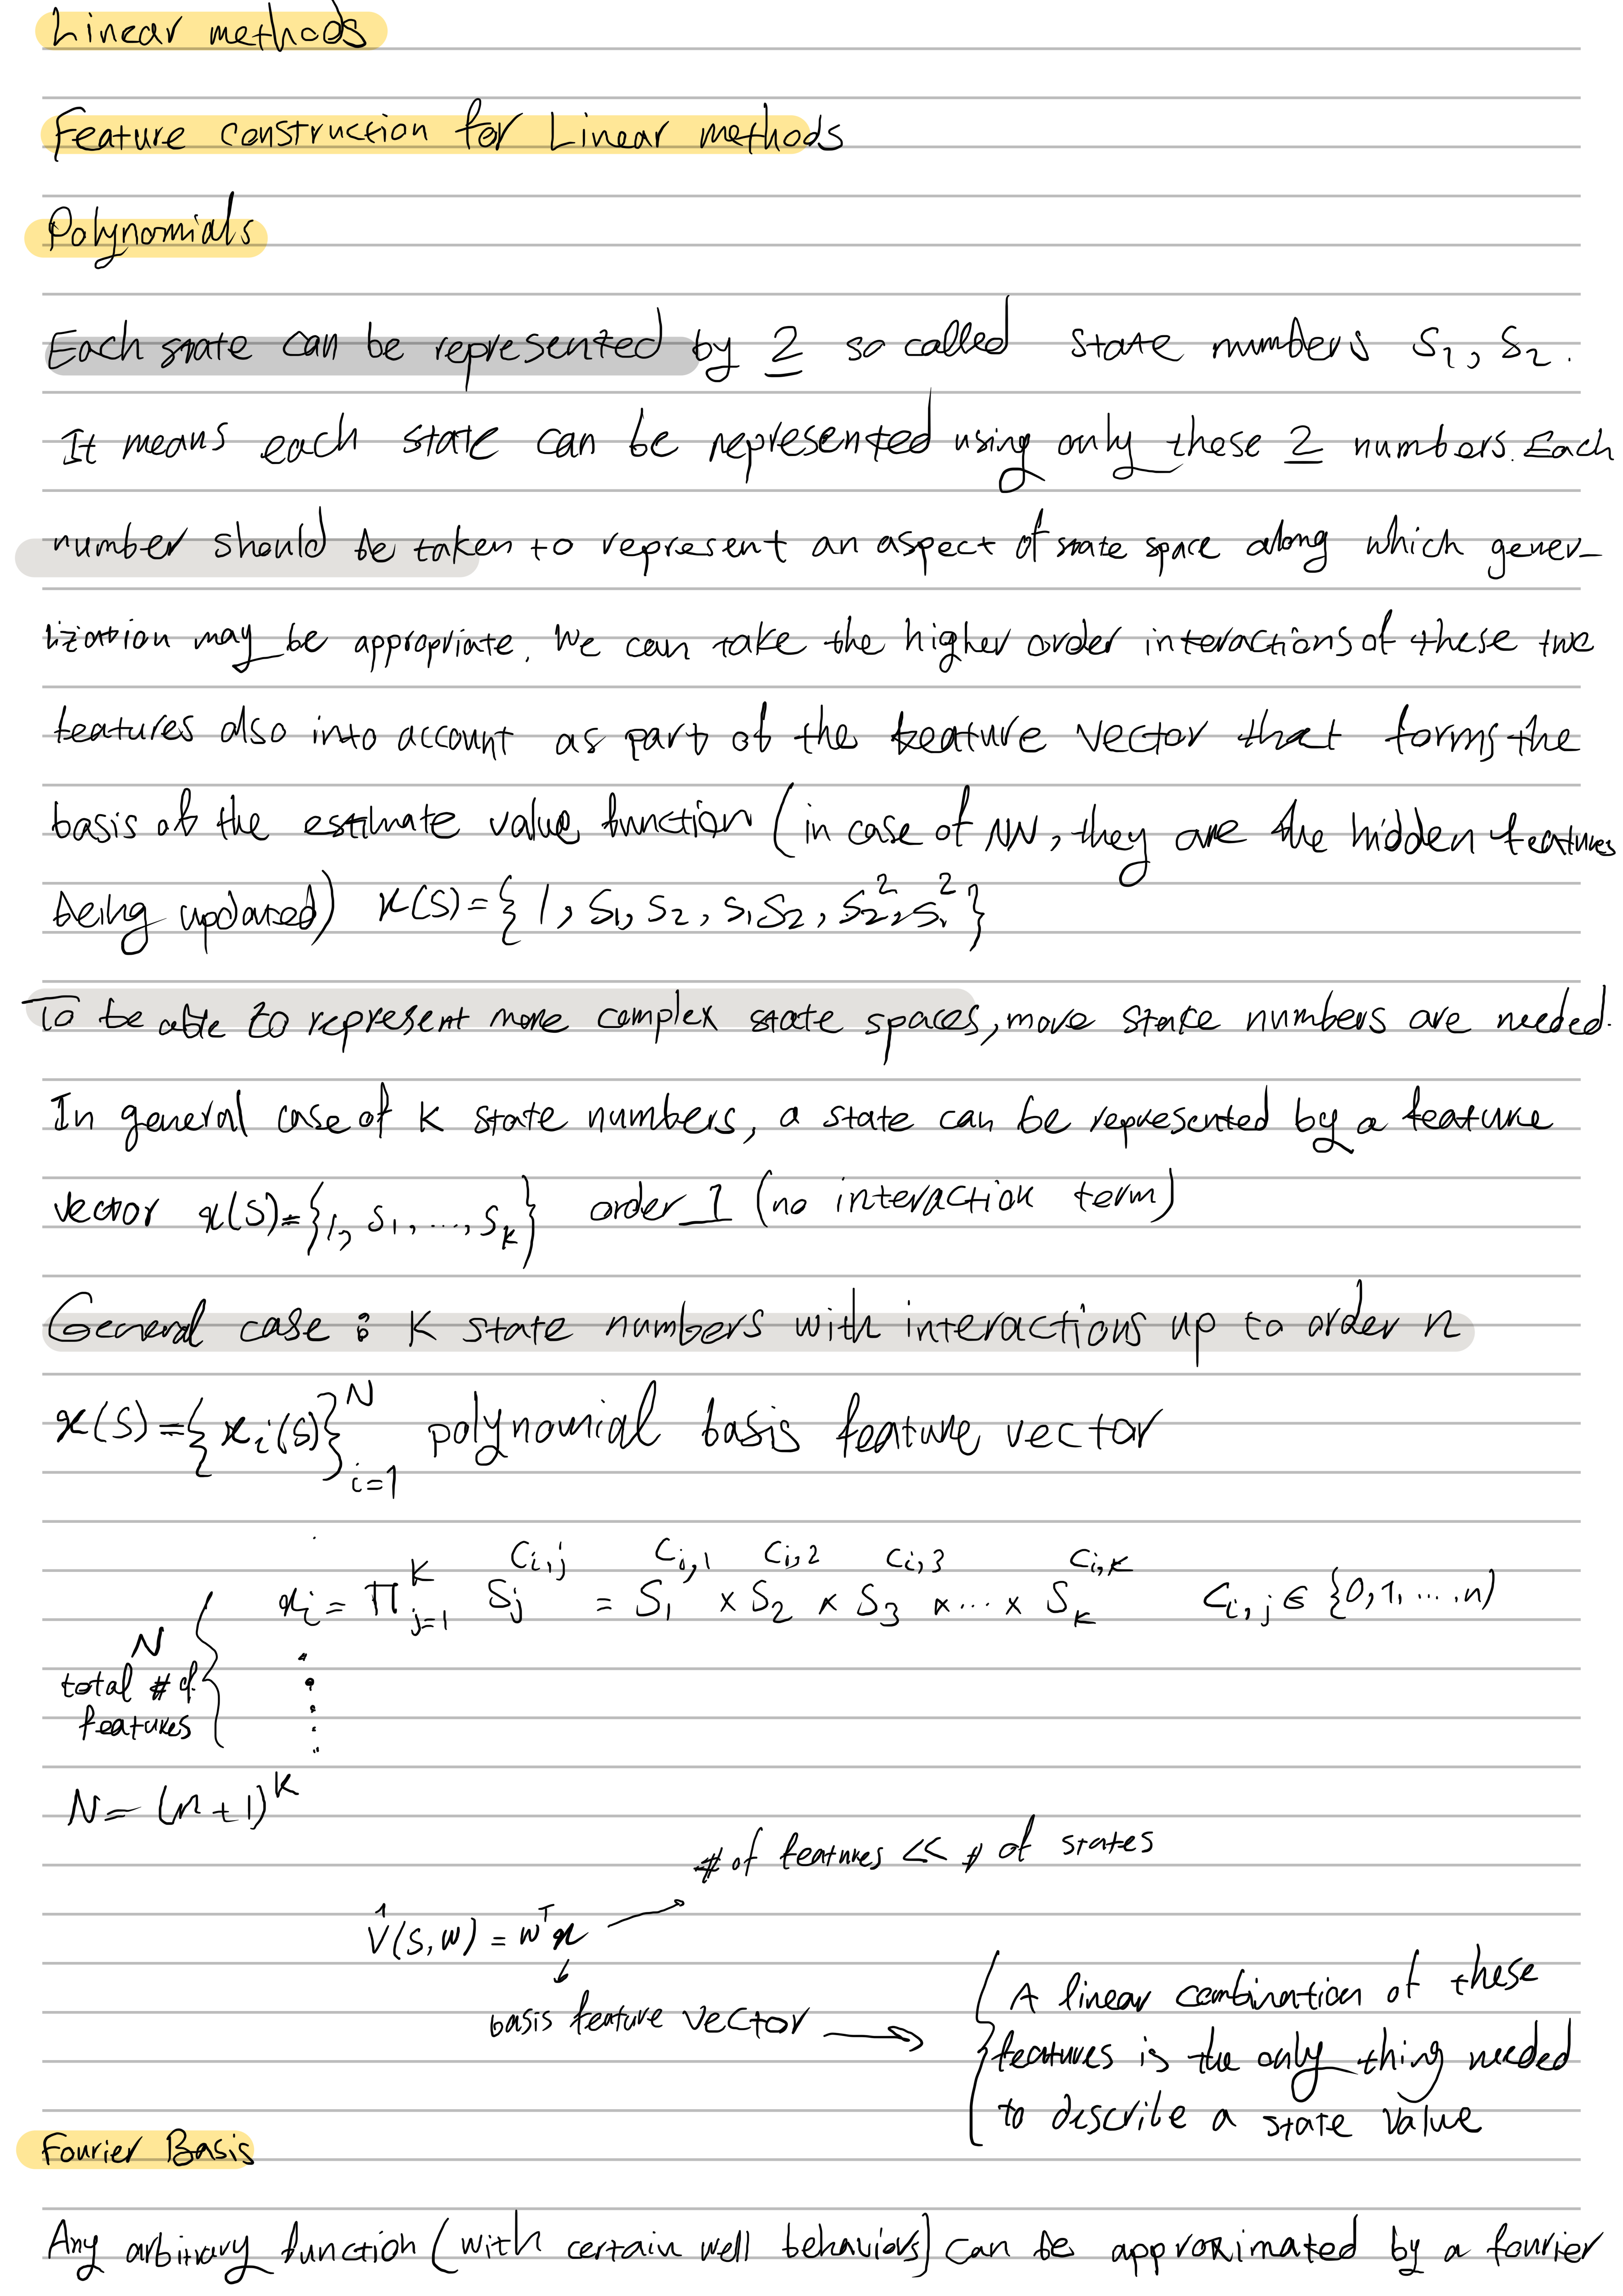 Linear methods
Feature construction for Linear methods
Polynomials
Each state can be represented by 2 so called state numbers S₁, S₂.
It means each state can be represented using only these 2 numbers. Each
number should be taken to represent an aspect of state space along which gener-
lization may be appropriate. We can take the higher order interactions of these two
features also into account as part of the feature vector that forms the
basis of the estimate value function (in case of NN, they are the hidden features
being updated) x(S) = {1, S₁, S₂, S₁S₂, S₂², S₁²}
To be able to represent more complex state spaces, more state numbers are needed.
In general case of K state numbers, a state can be represented by a feature
vector x(S) = {1, S₁, ..., Sₖ} order 1 (no interaction term)
General case : K state numbers with interactions up to order n
x(S) = {xᵢ(S)}ᵢ₌₁ᴺ polynomial basis feature vector
xᵢ = Πⱼ₌₁ᴷ Sⱼ^{Cᵢ,ⱼ} = S₁^{Cᵢ,₁} × S₂^{Cᵢ,₂} × S₃^{Cᵢ,₃} × ... × Sₖ^{Cᵢ,ₖ} Cᵢ,ⱼ ∈ {0, 1, ..., n)
N
total # of
features
N = (n+1)^K
# of features << # of states
V̂(S, W) = Wᵀx
basis feature vector
A linear combination of these
features is the only thing needed
to describe a state value
Fourier Basis
Any arbitrary function (with certain well behaviors) can be approximated by a fourier